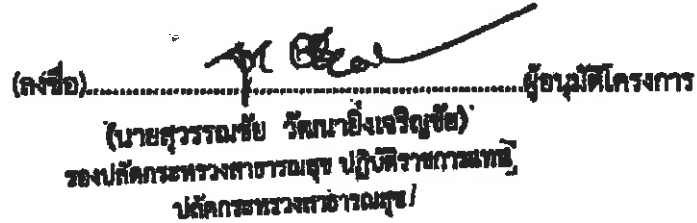 (ลงชื่อ)........................................................ผู้อนุมัติโครงการ
(นายสุวรรณชัย วัฒนายิ่งเจริญชัย)
รองปลัดกระทรวงสาธารณสุข ปฏิบัติราชการแทน
ปลัดกระทรวงสาธารณสุข